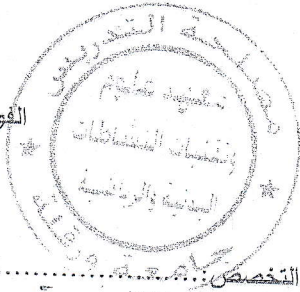 مصلحة التدريس
معهد علوم
وتقنيات النشاطات
البدنية والرياضية
جامعة ورقلة
التخصص: